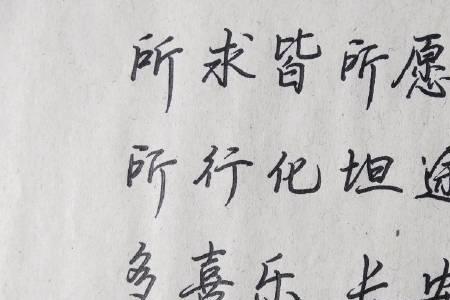 所求皆所愿
所行化坦途
多喜乐长安